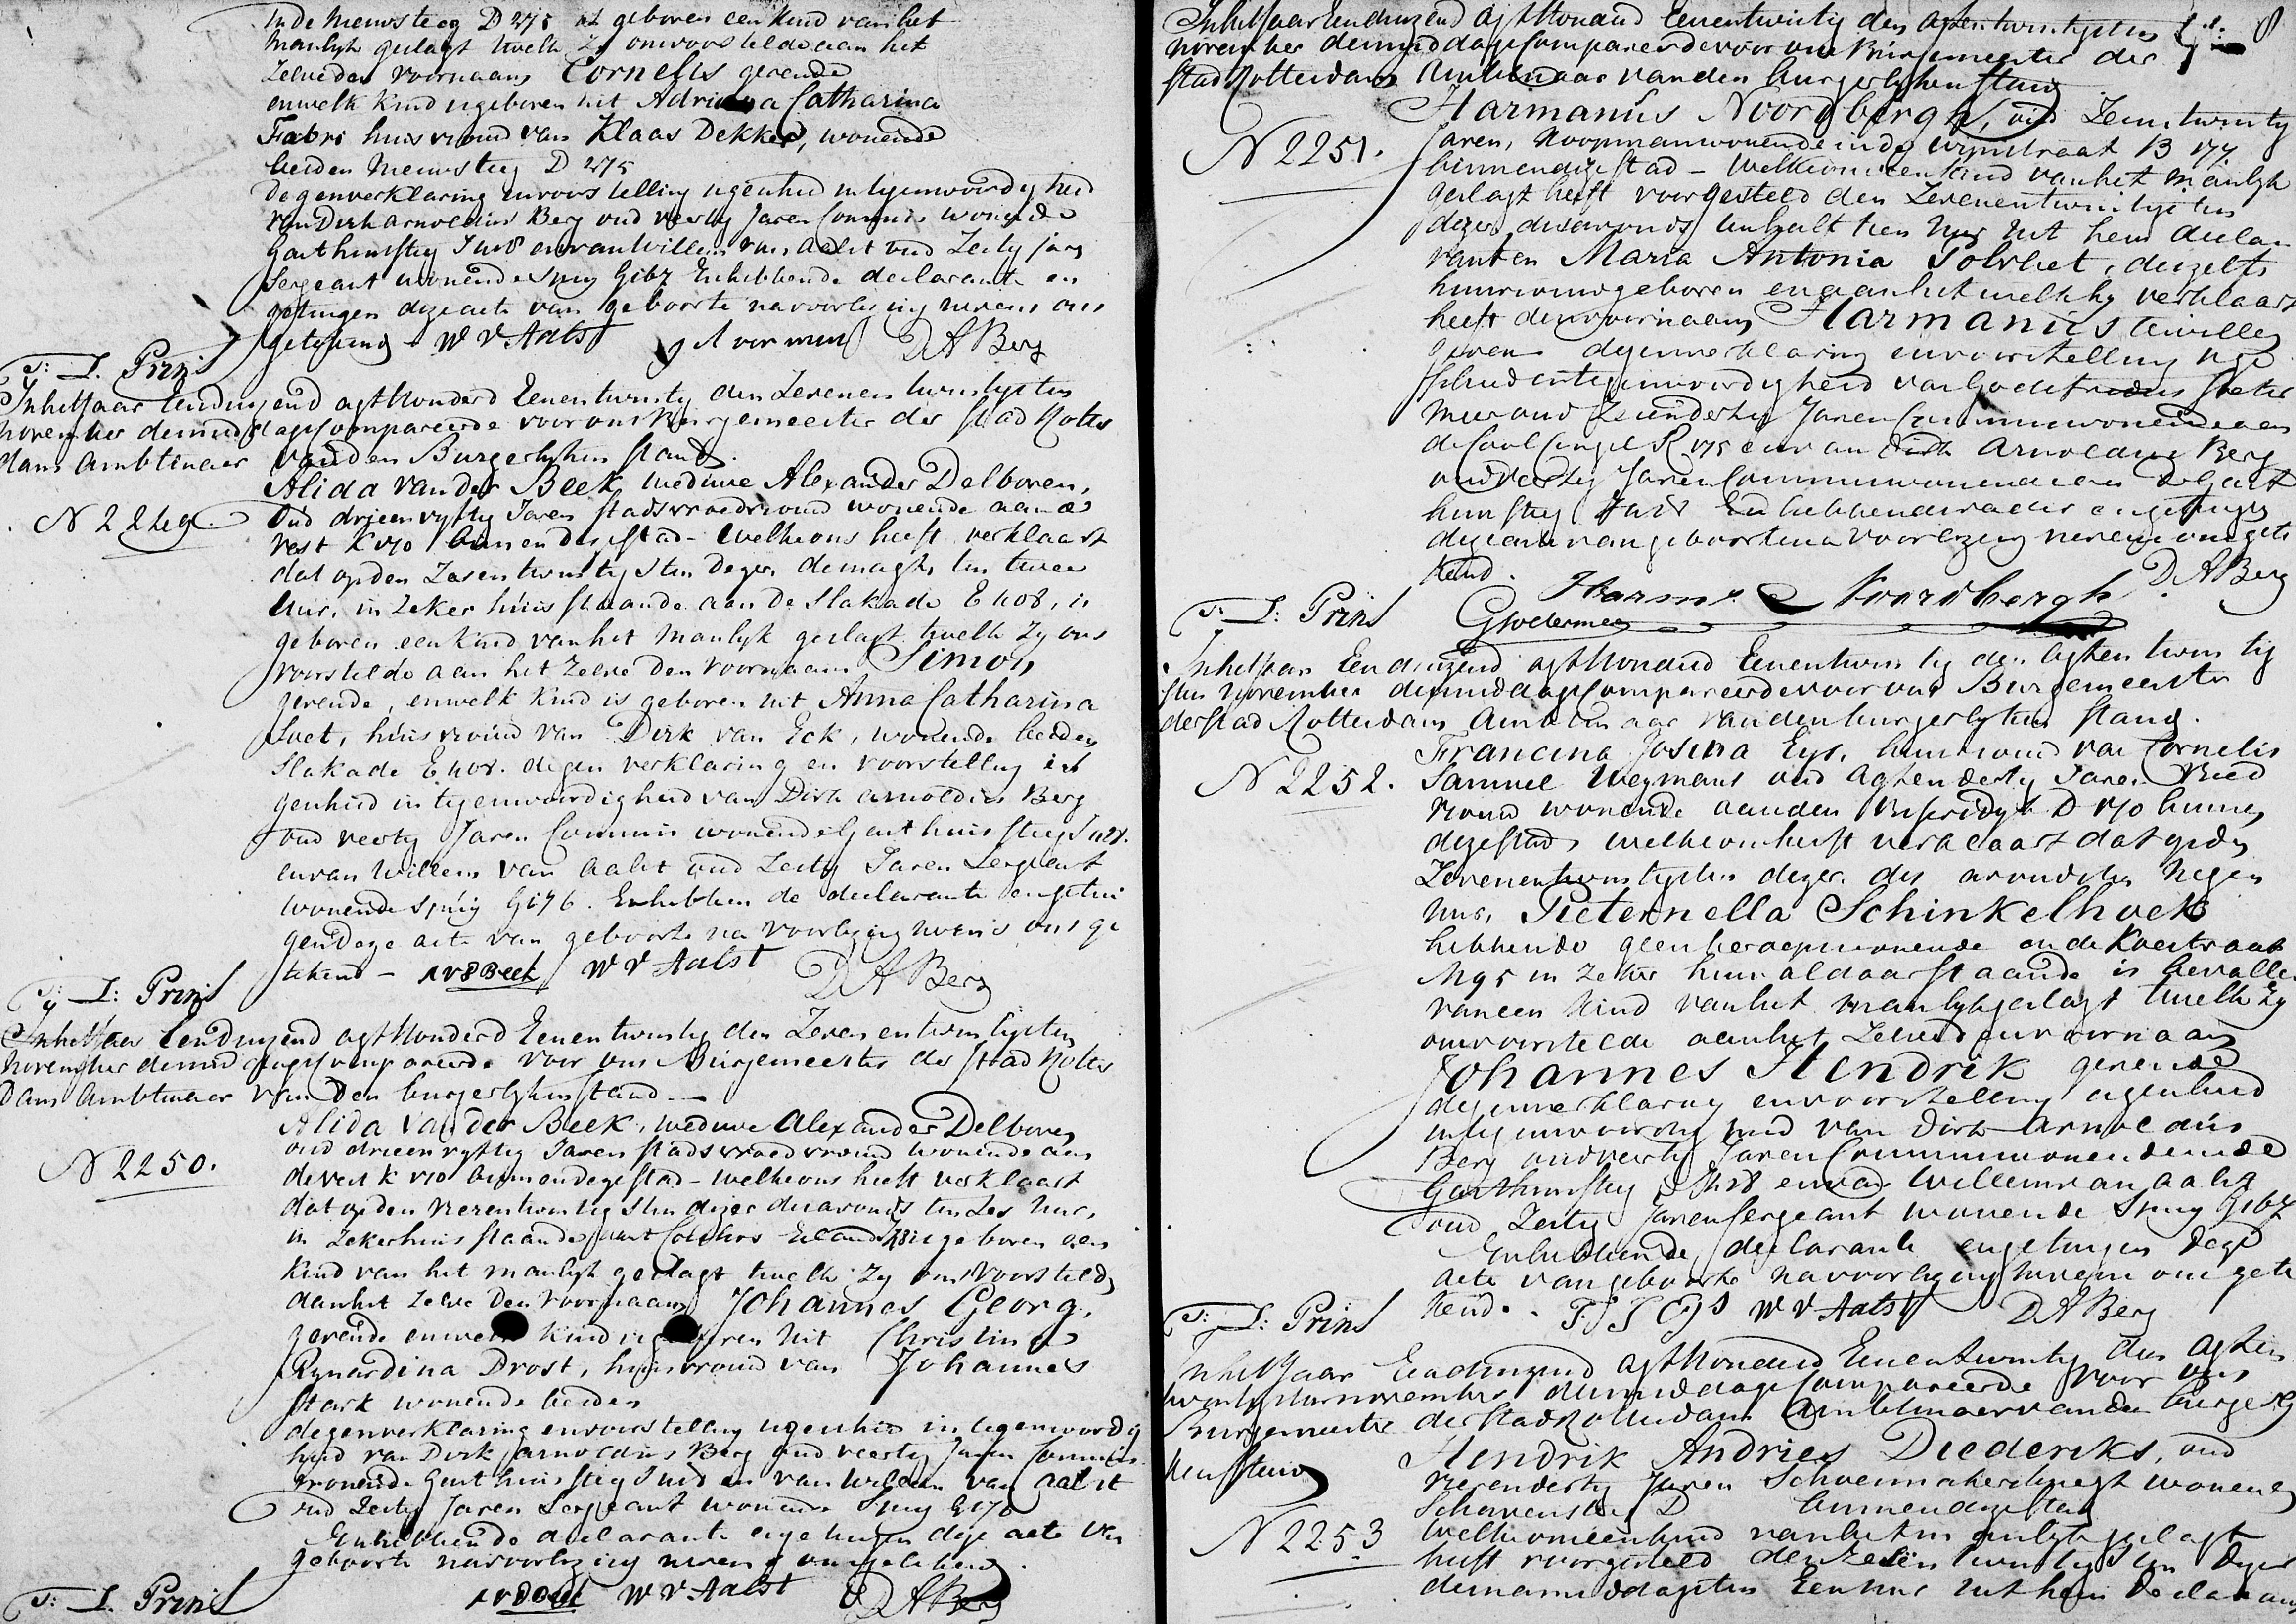 in de Nieuwsteeg D 275 is geboren een kind van het
manlyk geslagt twelk Zy ons voorstelde aan het
zelve den voornaam Cornelis geevende
en welk kind is geboren uit Adriana Catharina
Fabri huisvrouw van Klaas Dekker, wonende
beiden Nieuwsteeg D 275
dezen verklaring en voorstelling is geschied in tegenwoordigheid
van Dirk Arnoldus Berg oud veertig Jaren Commis wonende
Gasthuissteeg en van Willem van Aalst oud Zestig jaren
Sergeant wonende Spuy G167 En hebbende declarante en
getuigen deze acte van geboorte na voorlezing nevens ons
getekend W V Aalst D A Berg
J: Prins
In het Jaar Eenduizend agt Honderd Eenentwintig den Zevenentwintigsten
november de middags Compareerde voor ons Burgemeester der Stad Rotter
dam Ambtenaar van den Burgerlyken stand.
Alida van der Beek, weduwe Alexander Delboven,
N 2249. Oud drieenvyftig Jaren stadsvroedvrouw wonende aan de
vest K 170 binnen deze stad - welke ons heeft verklaart
dat op den Zesentwintigsten dezer de nagts ten twee
Uur, in zeker huis staande aan de Slakade E 408, is
geboren een kind van het manlyk geslagt twelk Zy ons
voorstelde aan het Zelve den voornaam Simon
gevende, en welk kind is geboren uit Anna Catharina
Soet, huisvrouw van Dirk van Eck, wonende beiden
Slakade E 408. dezen verklaring en voorstelling is
geschied in tegenwoordigheid van Dirk Arnoldus Berg
oud veertig Jaren Commis wonende Gasthuissteeg
en van Willem van Aalst oud Zestig Jaren Sergeant
wonende Spuy G176. En hebben de declarante en getui
gen deze acte van geboorte na voorlezing nevens ons ge
tekend - A v d Beek W V Aalst D A Berg
J: Prins
In het Jaar Eenduizend agt Honderd Eenentwintig den Zevenentwintigsten
November de middags Compareerde voor ons Burgemeester der Stad Rotter
dam Ambtenaar van den burgerlyken stand -
Alida van der Beek, weduwe Alexander Delboven
oud drieenvyftig Jaren stadsvroedvrouw wonende aan
N 2250. de vest K 170 binnen deze stad - welke ons heeft verklaart
dat op den vierentwintigsten dezer des avonds ten Zes Uur,
in Zeker huis staande is geboren een
Kind van het manlyk geslagt twelk Zy ons voorstelde
aan het Zelve den voornaam Johannes Georg,
gevende en welk kind is geboren uit Christina
Rynardina Drost, huisvrouw van Johannes
Stark wonende beiden
dezen verklaring en voorstelling is geschied in tegenwoordig
heid van Dirk Arnoldus Berg oud veertig Jaren Commis
wonende Gasthuissteeg en van Willem van Aalst
oud Zestig Jaren Sergeant wonende Spuy G176
En hebbende declarante en getuigen deze acte van
geboorte na voorlezing nevens ons getekend.
A v d Beek W V Aalst D A Berg
J: Prins
In het Jaar Eenduizend agt Honderd Eenentwintig den agtentwintigsten
november de middags Compareerde voor ons Burgemeester der
stad Rotterdam Ambtenaar van den burgerlyken stand
Harmanus Noordbergh, oud Zesentwintig
N 2251. Jaren, Koopman wonende in de Wynstraat B 177
binnen deze stad - welke ons een kind van het manlyk
geslagt heeft voorgesteld den Zevenentwintigsten
dezer des avonds ten half tien Uur uit hem decla
rant en Maria Antonia Tolvliet, deszelfs
huisvrouw geboren en aan het welk hy verklaart
heeft den voornaam Harmanus te willen
geven deze verklaring en voorstelling is ge
schied in tegenwoordigheid van Godefridus Soeter
meer oud Zesendertig Jaren Commis wonende aan
de Coolsingel R 175 en van Dirk Arnoldus Berg
oud veertig Jaren Commis wonende in de Gast
huissteeg En hebbende vader en getuigen
deze acte van geboorte na voorlezing nevens ons gete
kend. Harms Noordbergh D. A Berg
J: Prins GSoetermeer
In het Jaar Eenduizend agt Honderd Eenentwintig den agtentwintig
sten November de middags Compareerde voor ons Burgemeester
der stad Rotterdam Ambtenaar van den burgerlyken stand.
Francina Josina Eys, huisvrouw van Cornelis
N 2252. Samuel Weymans oud agtendertig Jaren Vroed
vrouw wonende aan den D 170 binnen
deze stad welke ons heeft verklaart dat op den
Zevenentwintigsten dezer des avonds ten Negen
Uur, Pieternella Schinkelhoek
hebbende geen beroep wonende in de Raestraat
M 95 in zeker huis aldaar staande is bevallen
van een Kind van het manlyk geslagt twelk Zy
ons voorstelde aan het Zelve den voornaam
Johannes Hendrik gevende
deze verklaring en voorstelling is geschied
in tegenwoordigheid van Dirk Arnoldus
Berg oud veertig Jaren Commis wonende in de
Gasthuissteeg en van Willem van Aalst
oud Zestig Jaren Sergeant wonende Spuy G167
En hebbende declarante en getuigen deze
acte van geboorte na voorlezing nevens ons gete
kend. F J Eys W V Aalst D A Berg
J: Prins
In het Jaar Eenduizend agt Honderd Eenentwintig den agten
twintigsten november de middags Compareerde voor ons
Burgemeester der stad Rotterdam Ambtenaar van den burgerly
ken stand Hendrik Andries Diederiks, oud
vierendertig Jaren Schoenmakersknegt wonende
Schavensteeg D binnen deze stad
N 2253 welke ons een kind van het manlyk geslagt
heeft voorgesteld den Zesentwintigsten dezer
de namiddags ten Een uur uit hem Declarant